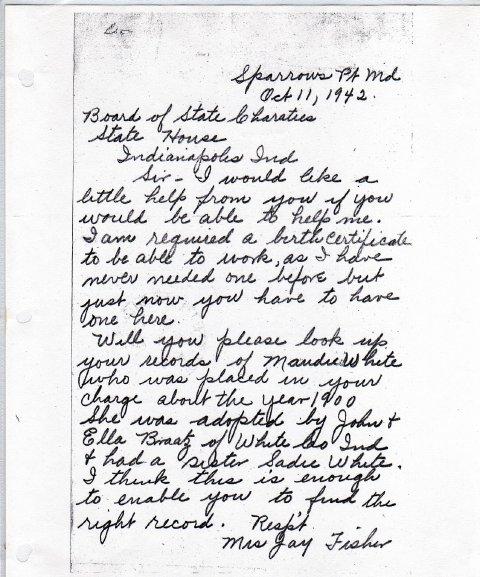 Sparrows Pt Md
Oct 11, 1942.
Board of State Charaties
State House
Indianapolis Ind
Sir - I would like a
little help from you if you
would be able to help me.
I am required a birth certificate
to be able to work, as I have
never needed one before but
just now you have to have
one here.
Will you please look up
your records of Maudie White
who was placed in your
charge about the year 1900
She was adopted by John &
Ella Braatz of White Co Ind
& had a sister Sadie White.
I think this is enough
to enable you to find the
right record. Resp't
Mrs Jay Fisher